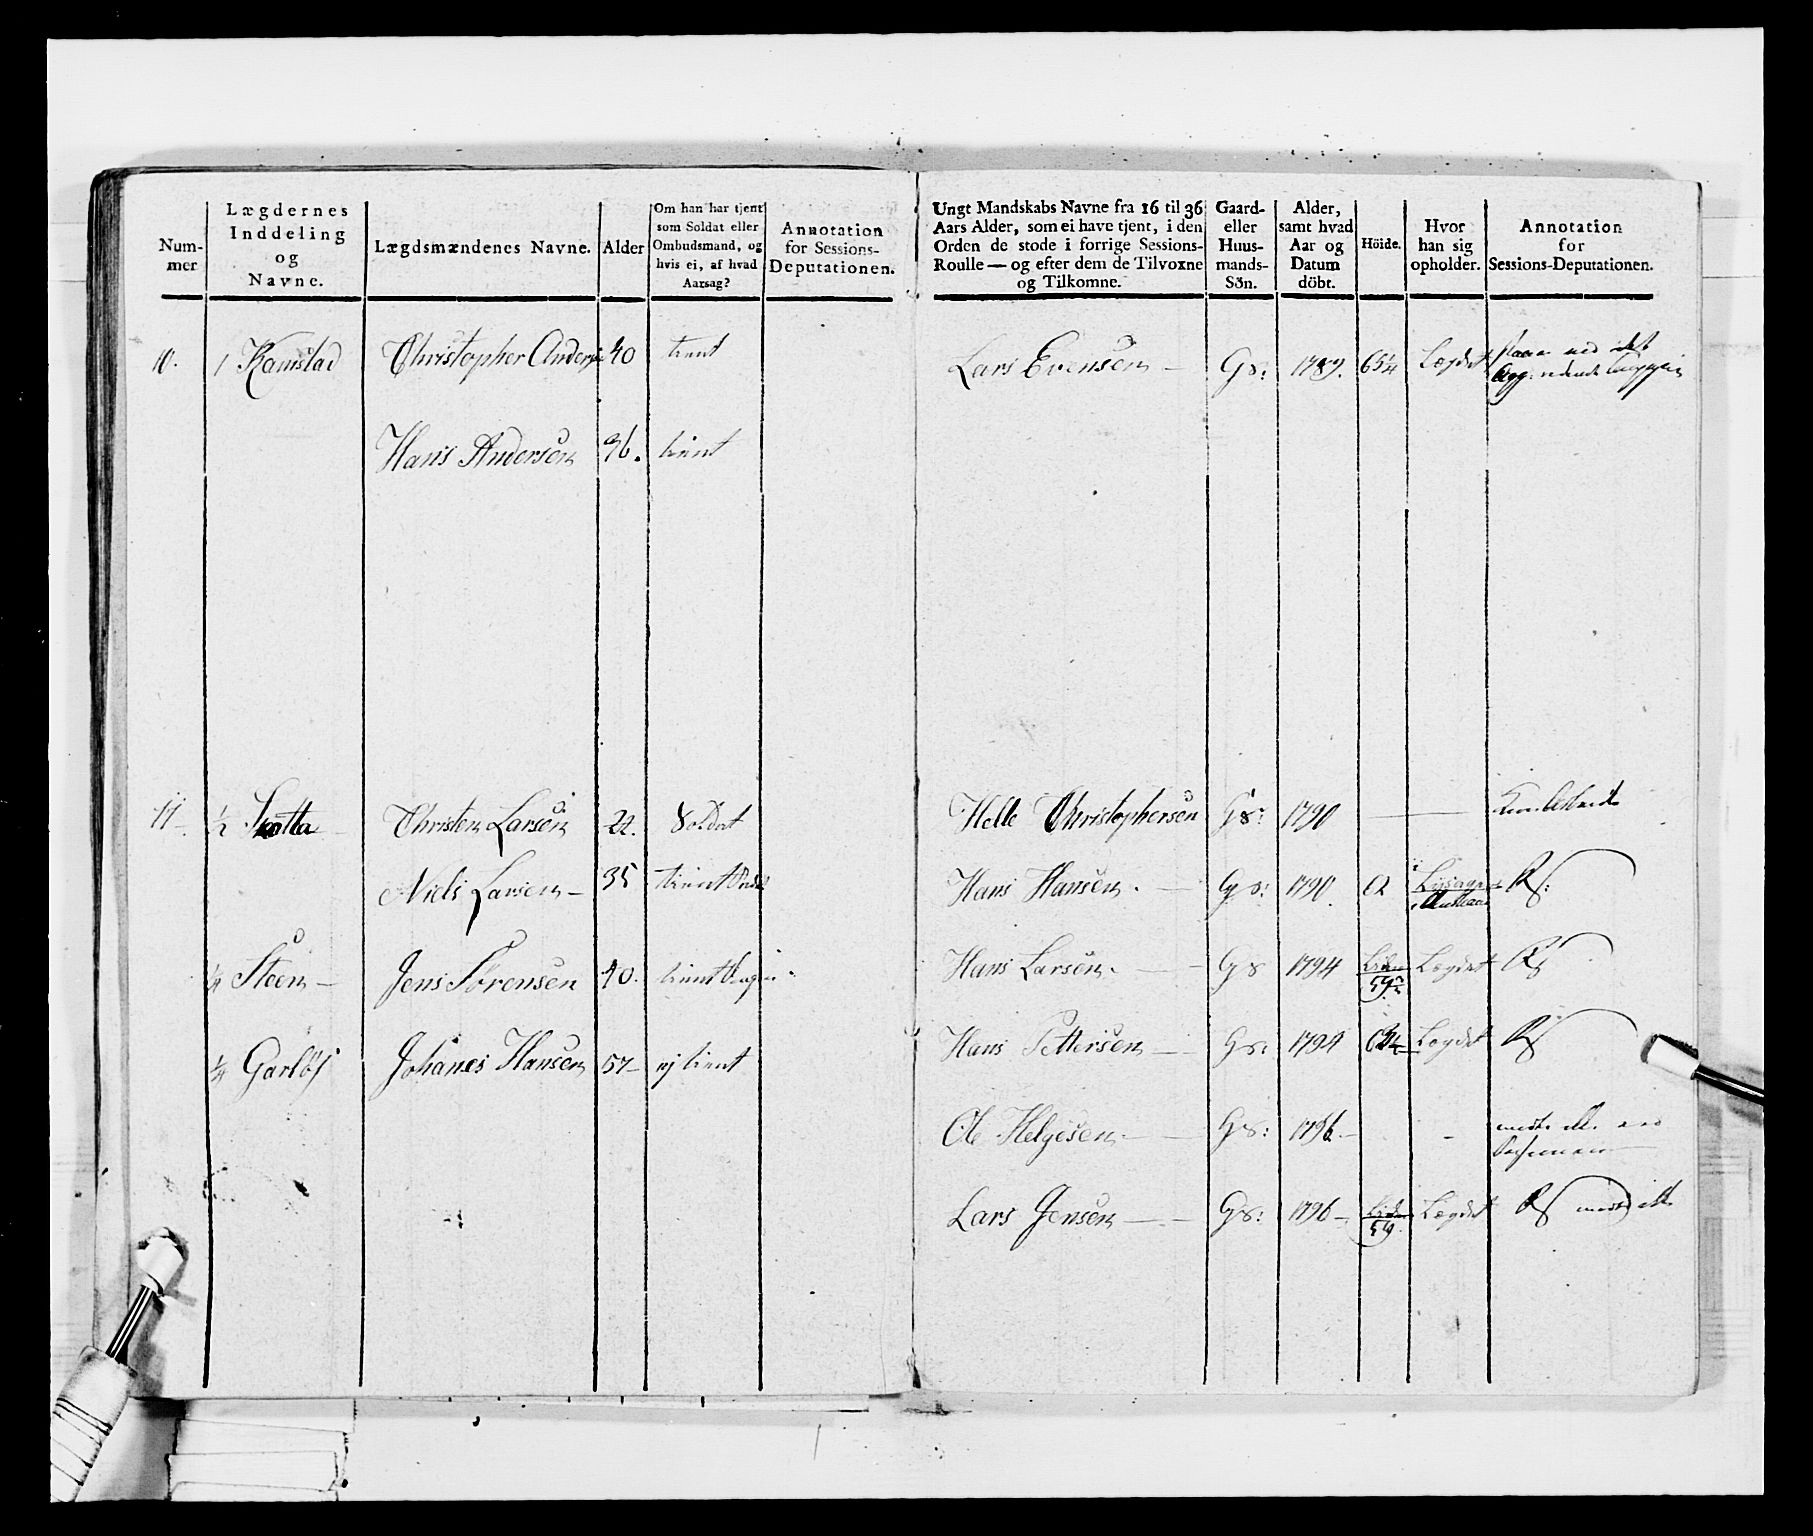 Num-
mer
Lægdernes
Inddeling
og
Navne.
Lægdsmændenes Navne.
Alder
Om han har tjent
som Soldat eller
Ombudsmand, og
hvis ei, af hvad
Aarsag?
Annotation
for Sessions-
Deputationen.
Ungt Mandskabs Navne fra 16 til 36
Aars Alder, som ei have tjent, i den
Orden de stode i forrige Sessions-
Roulle — og efter dem de Tilvoxne
og Tilkomne.
Gaard-
eller
Huus-
mands-
Sön.
Alder,
samt hvad
Aar og
Datum
döbt.
Höide.
Hvor
han sig
opholder.
Annotation
for
Sessions-Deputationen.
10. 1 Ramstad Christopher Anders 40 tient
Hans Andersen 36. tient
11 ½ Christen Larsen 22. Soldat
Niels Larsen 35 tient
¼ Steen Jens Sörensen 40. tient
¼ Garlös Johanes Hansen 57 ej tient
Lars Evensen Gs: 1789. 65¼ Lægdet
Helle Christophersen Gs: 1790
Hans Hansen. Gs: 1790. 62
Hans Larsen. Gs 1794 Lægdet
Hans Pettersen Gs: 1794 Lægdet
Ole Helgesen Gs: 1796.
Lars Jensen Gs: 1796 59 Lægdet